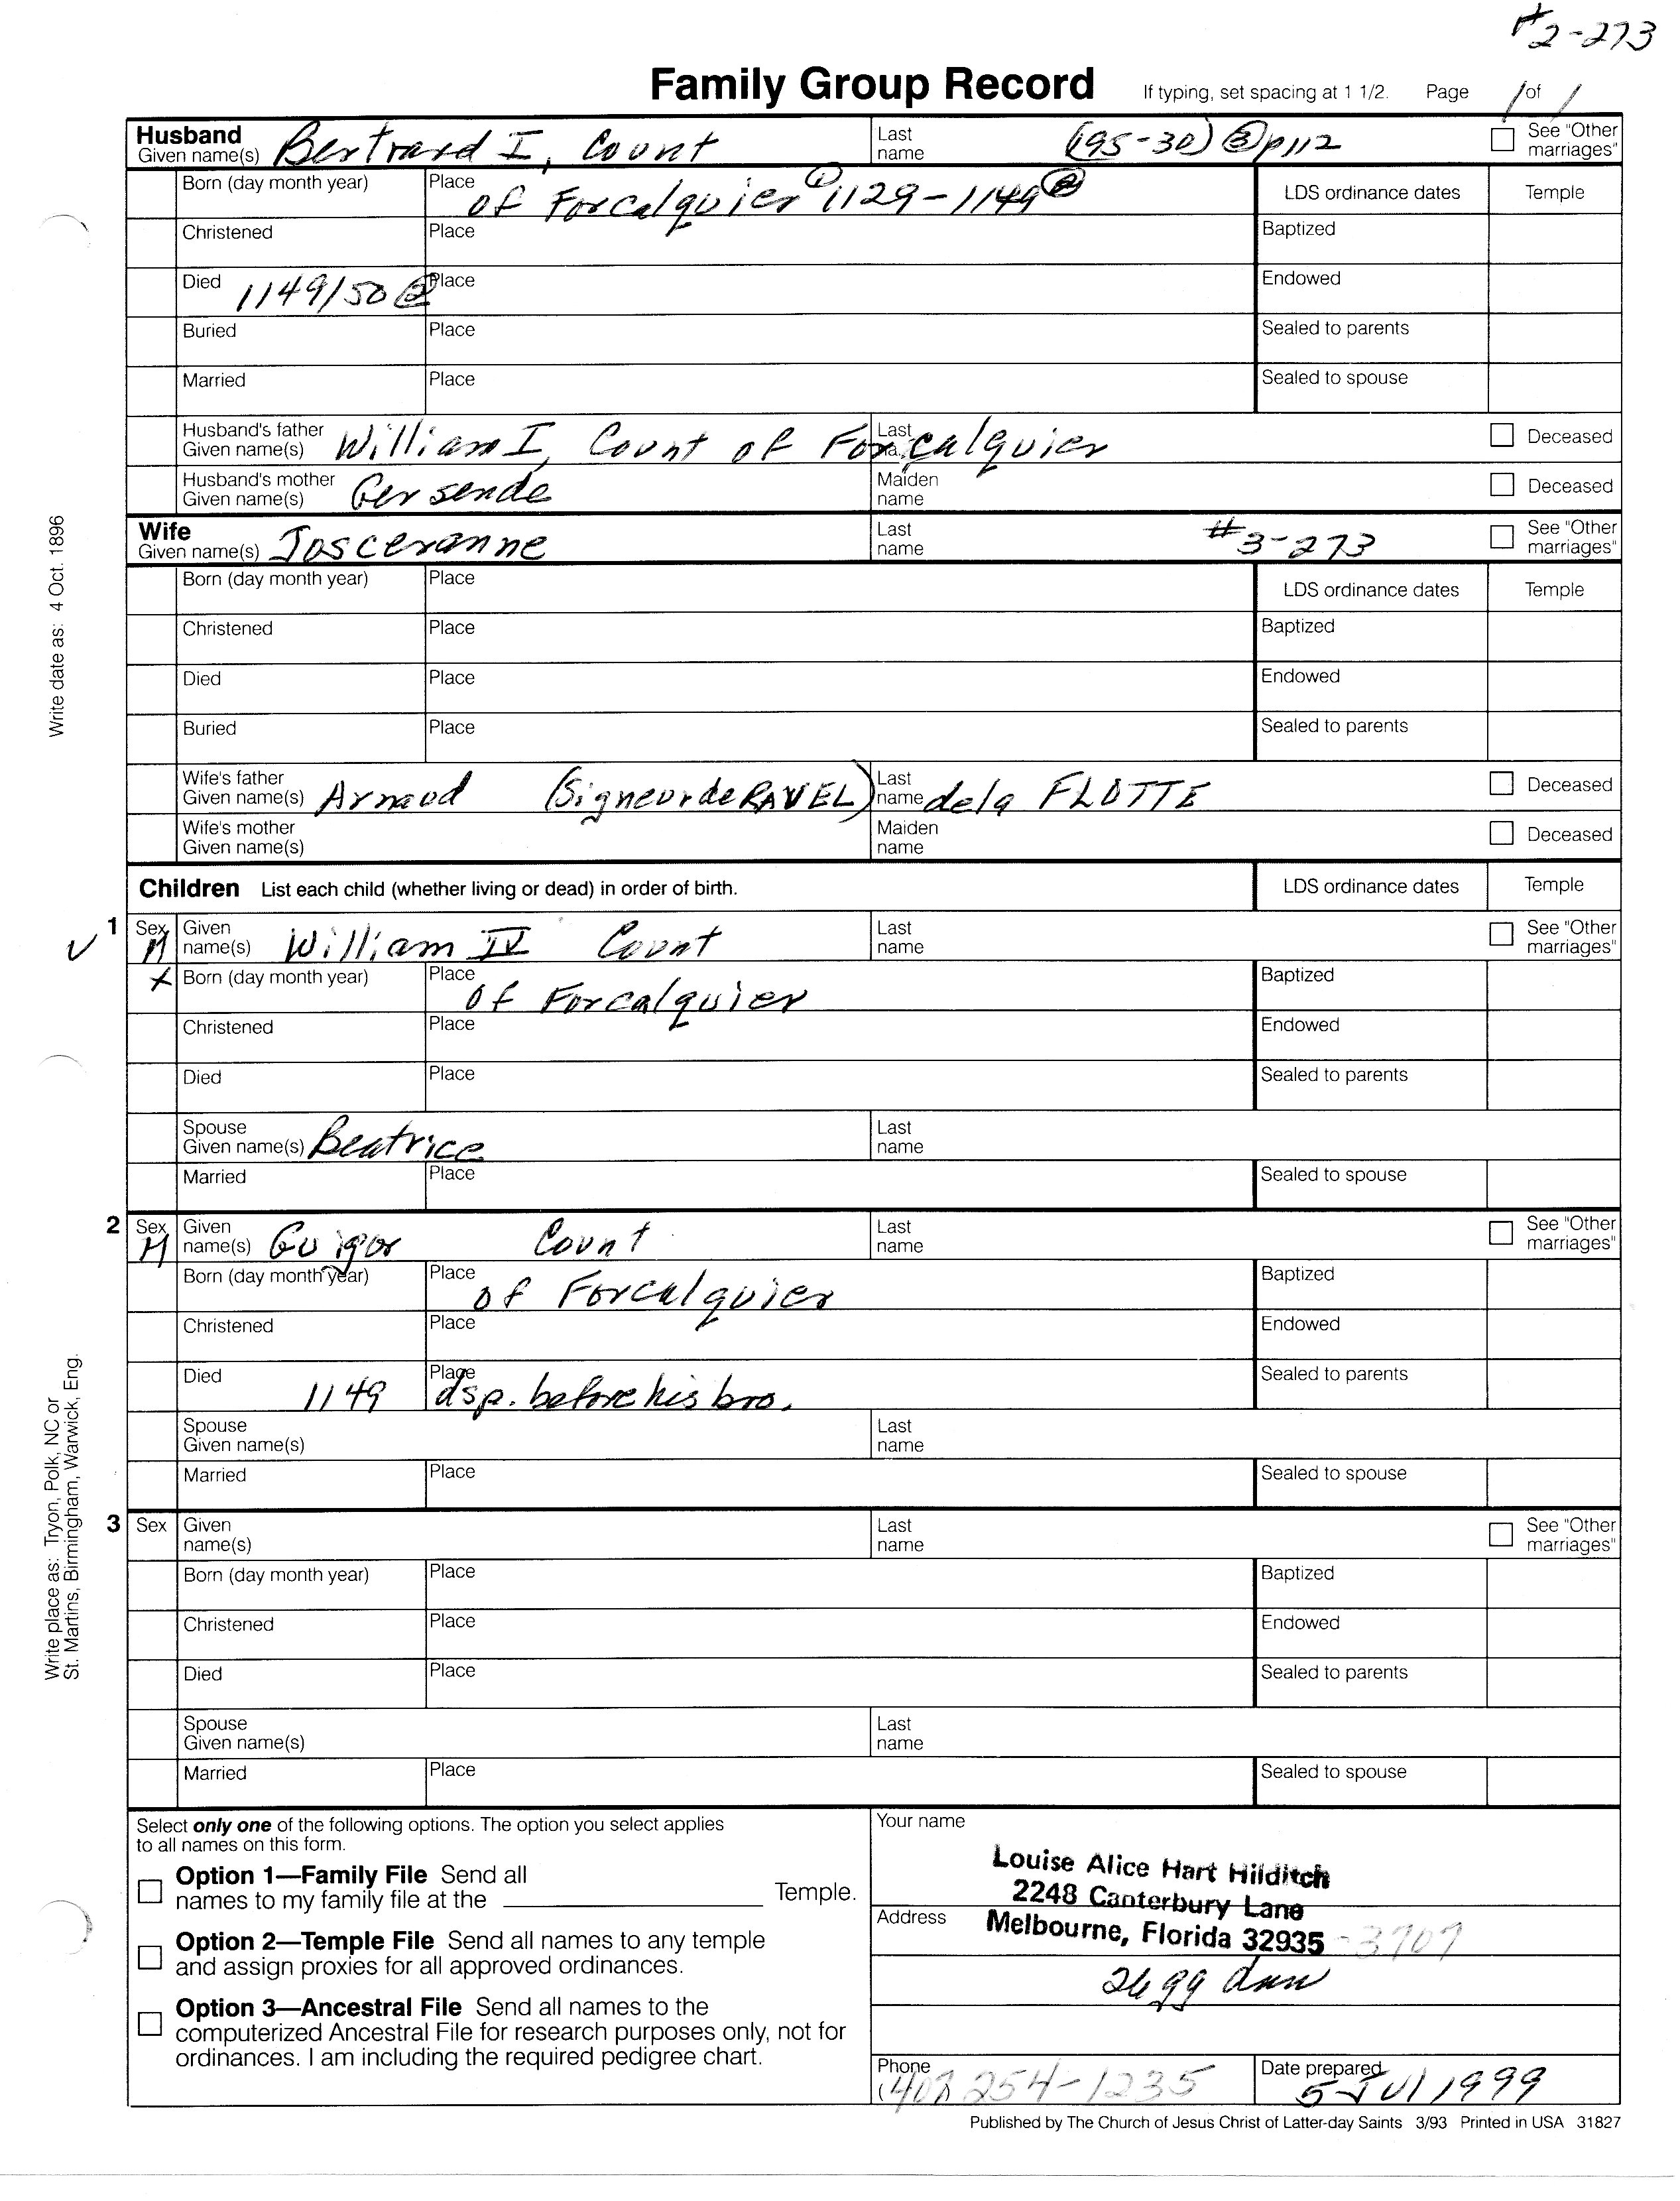 #2-273
Family Group Record If typing, set spacing at 1 1/2. Page 1 of 1
Husband Given name(s) Bertrand I, Count Last name (195-30) ③ p112 See "Other marriages"
Born (day month year) Place of Forcalquier ① 1129-1149 ② LDS ordinance dates Temple
Christened Place Baptized
Died 1149/50 ② Place Endowed
Buried Place Sealed to parents
Married Place Sealed to spouse
Husband's father Given name(s) William I, Count of Forcalquier Last Deceased
Husband's mother Given name(s) Gersende Maiden name Deceased
Wife Given name(s) Josceranne Last name #3-273 See "Other marriages"
Born (day month year) Place LDS ordinance dates Temple
Christened Place Baptized
Died Place Endowed
Buried Place Sealed to parents
Wife's father Given name(s) Arnaud (Signeur de RAVEL) Last name de la FLOTTE Deceased
Wife's mother Given name(s) Maiden name Deceased
Children List each child (whether living or dead) in order of birth. LDS ordinance dates Temple
1 Sex M Given name(s) William IV Count Last name See "Other marriages"
x Born (day month year) Place of Forcalquier Baptized
Christened Place Endowed
Died Place Sealed to parents
Spouse Given name(s) Beatrice Last name
Married Place Sealed to spouse
2 Sex M Given name(s) Guigor Count Last name See "Other marriages"
Born (day month year) Place of Forcalquier Baptized
Christened Place Endowed
Died 1149 Place dsp. before his bro. Sealed to parents
Spouse Given name(s) Last name
Married Place Sealed to spouse
3 Sex Given name(s) Last name See "Other marriages"
Born (day month year) Place Baptized
Christened Place Endowed
Died Place Sealed to parents
Spouse Given name(s) Last name
Married Place Sealed to spouse
Select only one of the following options. The option you select applies
to all names on this form.
Option 1—Family File Send all
names to my family file at the Temple.
Option 2—Temple File Send all names to any temple
and assign proxies for all approved ordinances.
Option 3—Ancestral File Send all names to the
computerized Ancestral File for research purposes only, not for
ordinances. I am including the required pedigree chart.
Your name
Louise Alice Hart Hilditch
2248 Canterbury Lane
Address Melbourne, Florida 32935 -3707
26 gg dau
Phone (407 254-1235 Date prepared 5 Jul 1999
Published by The Church of Jesus Christ of Latter-day Saints 3/93 Printed in USA 31827
Write date as: 4 Oct. 1896
Write place as: Tryon, Polk, NC or
St. Martins, Birmingham, Warwick, Eng.